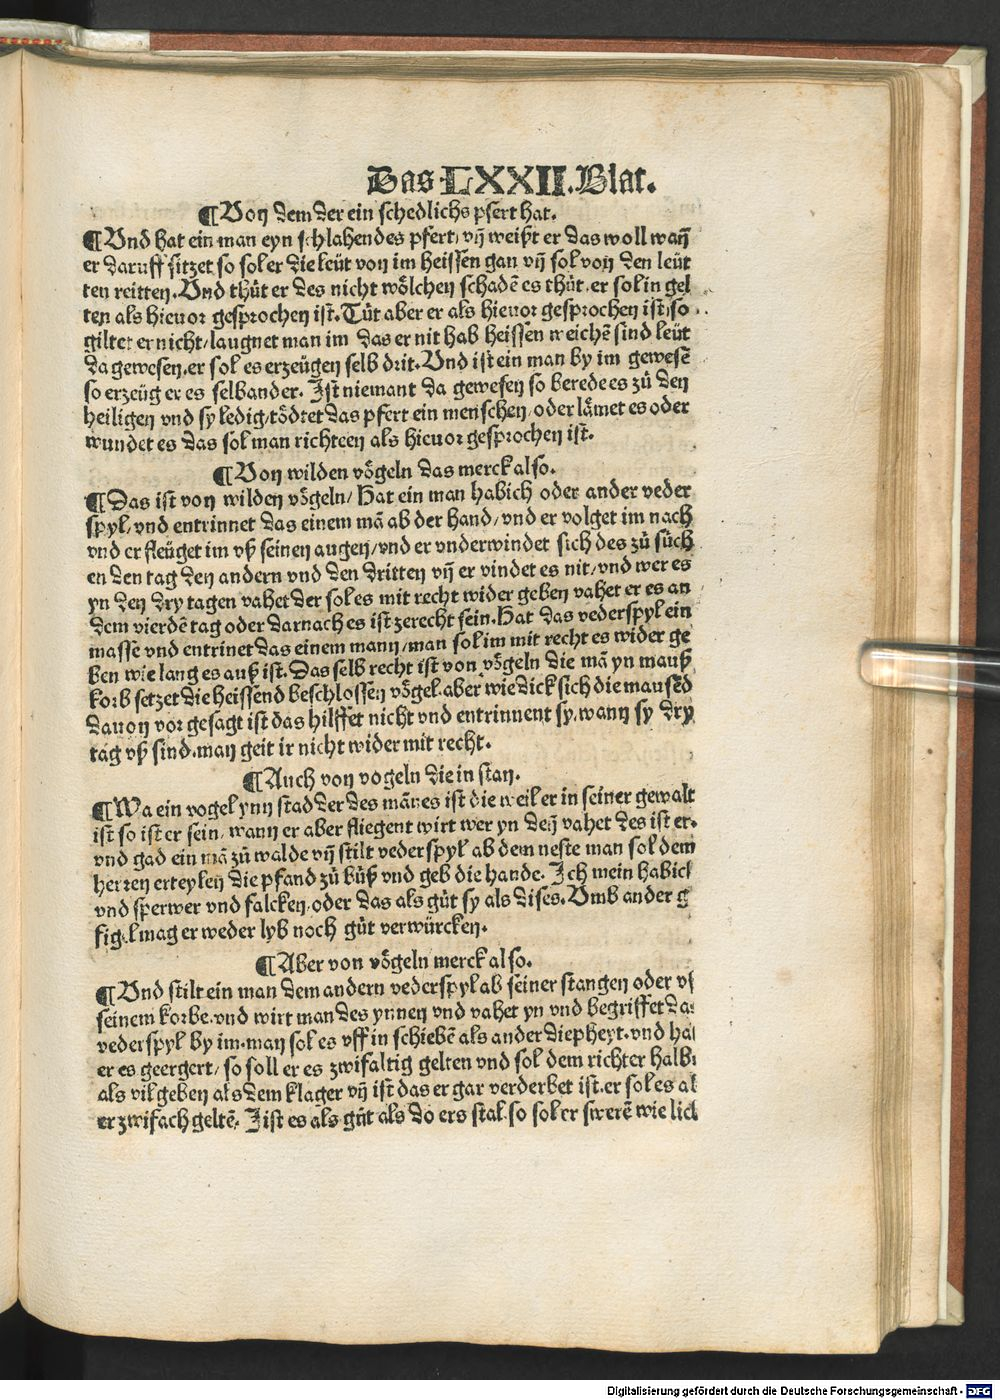 Das LXXII. Blat.
¶ Von dem der ein schedlichs pfert hat.
¶ Vnd hat ein man eyn schlahendes pfert/ vñ weißt er das woll wañ
er daruff sitzet so sol er die leüt von im heissen gan vñ sol von den leüt
ten reitten. Vnd thůt er des nicht wölchen schadē es thůt. er sol in gel
ten als hieuor gesprochen ist. Tůt aber er als hieuor gesprochen ist/ so
giltet er nicht/ laugnet man im das er nit hab heissen weichē sind leüt
da gewesen. er sol es erzeügen selb drit. Vnd ist ein man by im gewesē
so erzeüg er es selbander. Ist niemant da gewesen so berede es zů den
heiligen vnd sy ledig/ tödtet das pfert ein menschen/ oder lämet es oder
wundet es das sol man richteen als hieuor gesprochen ist.
¶ Von wilden vögeln das merck also.
¶ Das ist von wilden vögeln/ Hat ein man habich oder ander veder
spyl/ vnd entrinnet das einem mā ab der hand/ vnd er volget im nach
vnd er fleüget im vß seinen augen/ vnd er vnderwindet sich des zů sůch
en den tag den andern vnd den dritten vñ er vindet es nit/ vnd wer es
yn den dry tagen vahet der sol es mit recht wider geben vahet er es an
dem vierdē tag oder darnach es ist zerecht sein. Hat das vederspyl ein
masse vnd entrinet das einem mann/ man sol im mit recht es wider ge
ben wie lang es auß ist. Das selb recht ist von vögeln die mā yn mauß
korb setzet die heissend beschlossen vögel. aber wie dick sich die mausēd
dauon vor gesagt ist das hilffet nicht vnd entrinnent sy. wann sy dry
tag vß sind. man geit ir nicht wider mit recht.
¶ Auch von vogeln die in stan.
¶ Wa ein vogel ynn stad der des mānes ist die weil er in seiner gewalt
ist so ist er sein/ wann er aber fliegent wirt wer yn deñ vahet des ist er.
vnd gad ein mā zů walde vñ stilt vederspyl ab dem neste man sol dem
herren erteylen die pfand zů bůß vnd geb die hande. Ich mein habich
vnd sperwer vnd falcken/ oder das als gůt sy als dises. Vmb ander g
figel mag er weder lyb noch gůt verwürcken.
¶ Aber von vögeln merck also.
¶ Vnd stilt ein man dem andern vederspyl ab seiner stangen oder vß
seinem korbe. vnd wirt man des ynnen vnd vahet yn vnd begriffet das
vederspyl by im. man sol es vff in schiebē als ander diepheyt. vnd hat
er es geergert/ so soll er es zwifaltig gelten vnd sol dem richter halb
als vil geben als dem klager vñ ist das er gar verderbet ist. er sol es
er zwifach geltē. I ist es als gůt als do ers stal. so sol er swerē wie
Digitalisierung gefördert durch die Deutsche Forschungsgemeinschaft - DFG